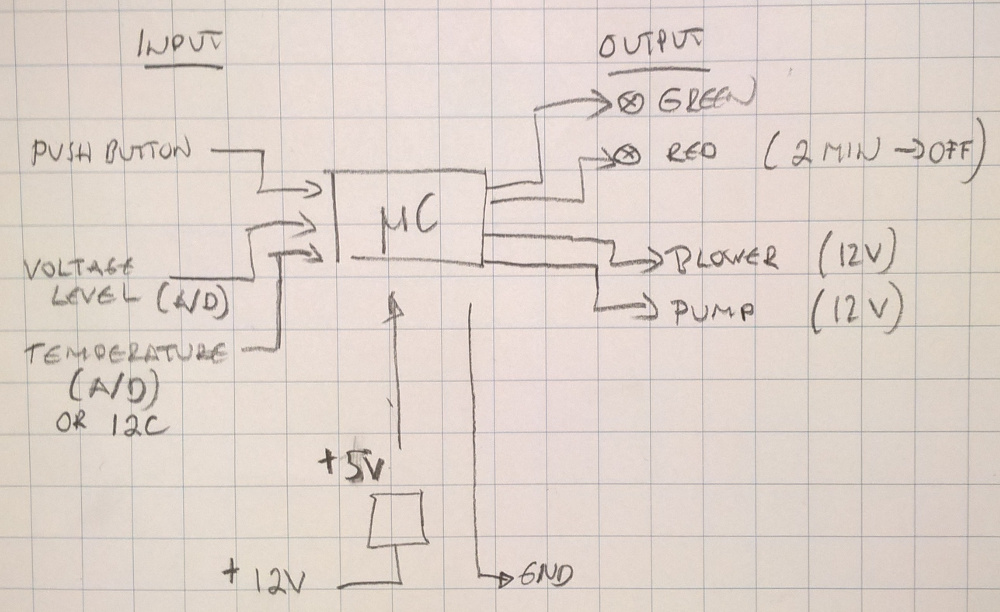 INPUT
OUTPUT
GREEN
PUSH BUTTON
RED (2 MIN → OFF)
μC
VOLTAGE
LEVEL (A/D)
BLOWER (12V)
PUMP (12V)
TEMPERATURE
(A/D)
OR I2C
+5V
+12V
GND